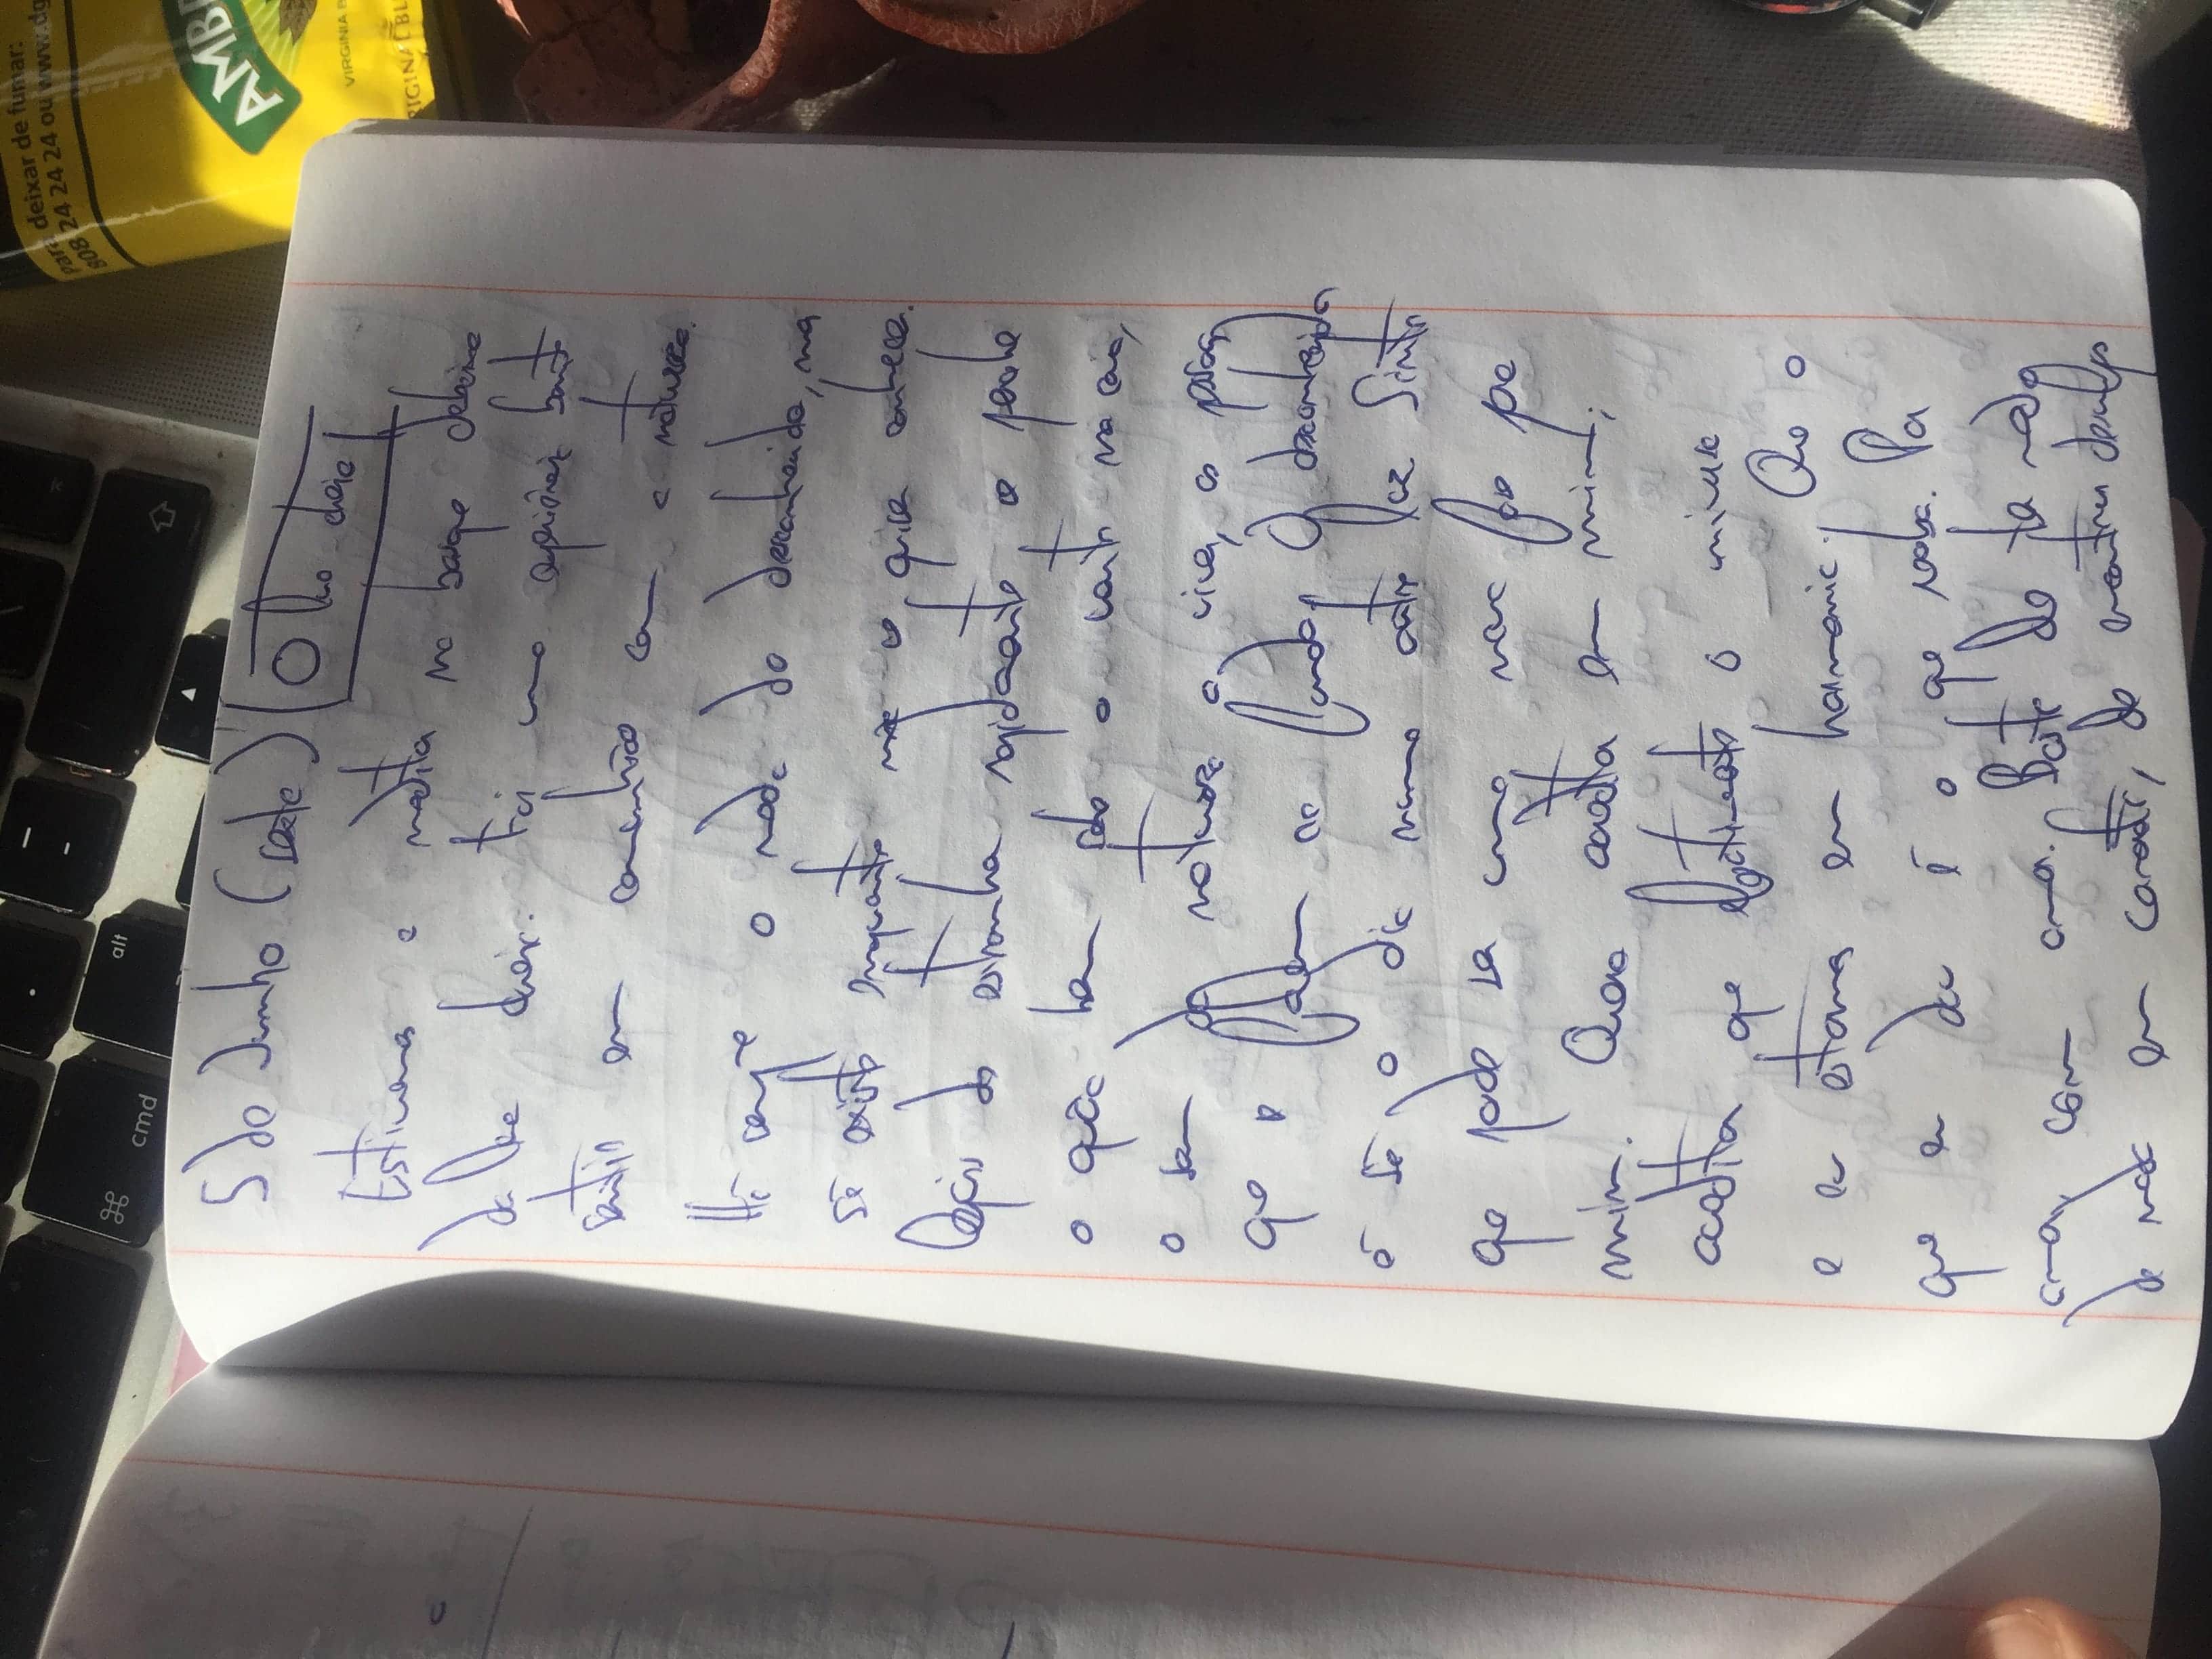 para deixar de fumar:
808 24 24 24 ou www.dg
cmd
alt
AMBE
VIRGINIA B
RIGINAL BL
5 de Junho (sexta) O lua cheia
Estivemos a meditar no bosque debaixo
da lua cheia. Foi uma experiência bonita
sentir em comunhão com a natureza.
Há sempre o medo do desconhecido, mas
só existe enquanto não o quiser conhecer.
Depois de estranhar rapidamente se percebe
o quão bem sabe o vento na cara,
o som da natureza a viver, os pássaros
que o fazem se
desconhecido
é só o dia numa outra luz. Sinto
que pode ser uma nova fase para
mim. Quero acreditar em mim;
acreditar que efectivamente o universo
e eu estamos em harmonia. Que o
que eu der é o que receba. Por
amor, com amor. Basta de ter medo
de
em concreto, de encontrar desculpas